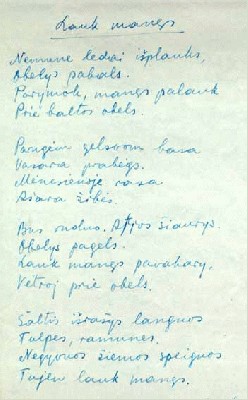 Lauk manęs
Nemune ledai išplauks,
Obelys pabals.
Parymok, manęs palauk
Prie baltos obels.
vasara prabėgs.
rasa
Ašara žibės.
Bus ruduo. Atjos šiaurys.
Obelys pagels.
Lauk manęs pavakary.
Vėtroj prie obels.
Šaltis išrašys languos
Tulpes, ramunes.
Negyvuos žiemos speiguos
Tujen lauk manęs.